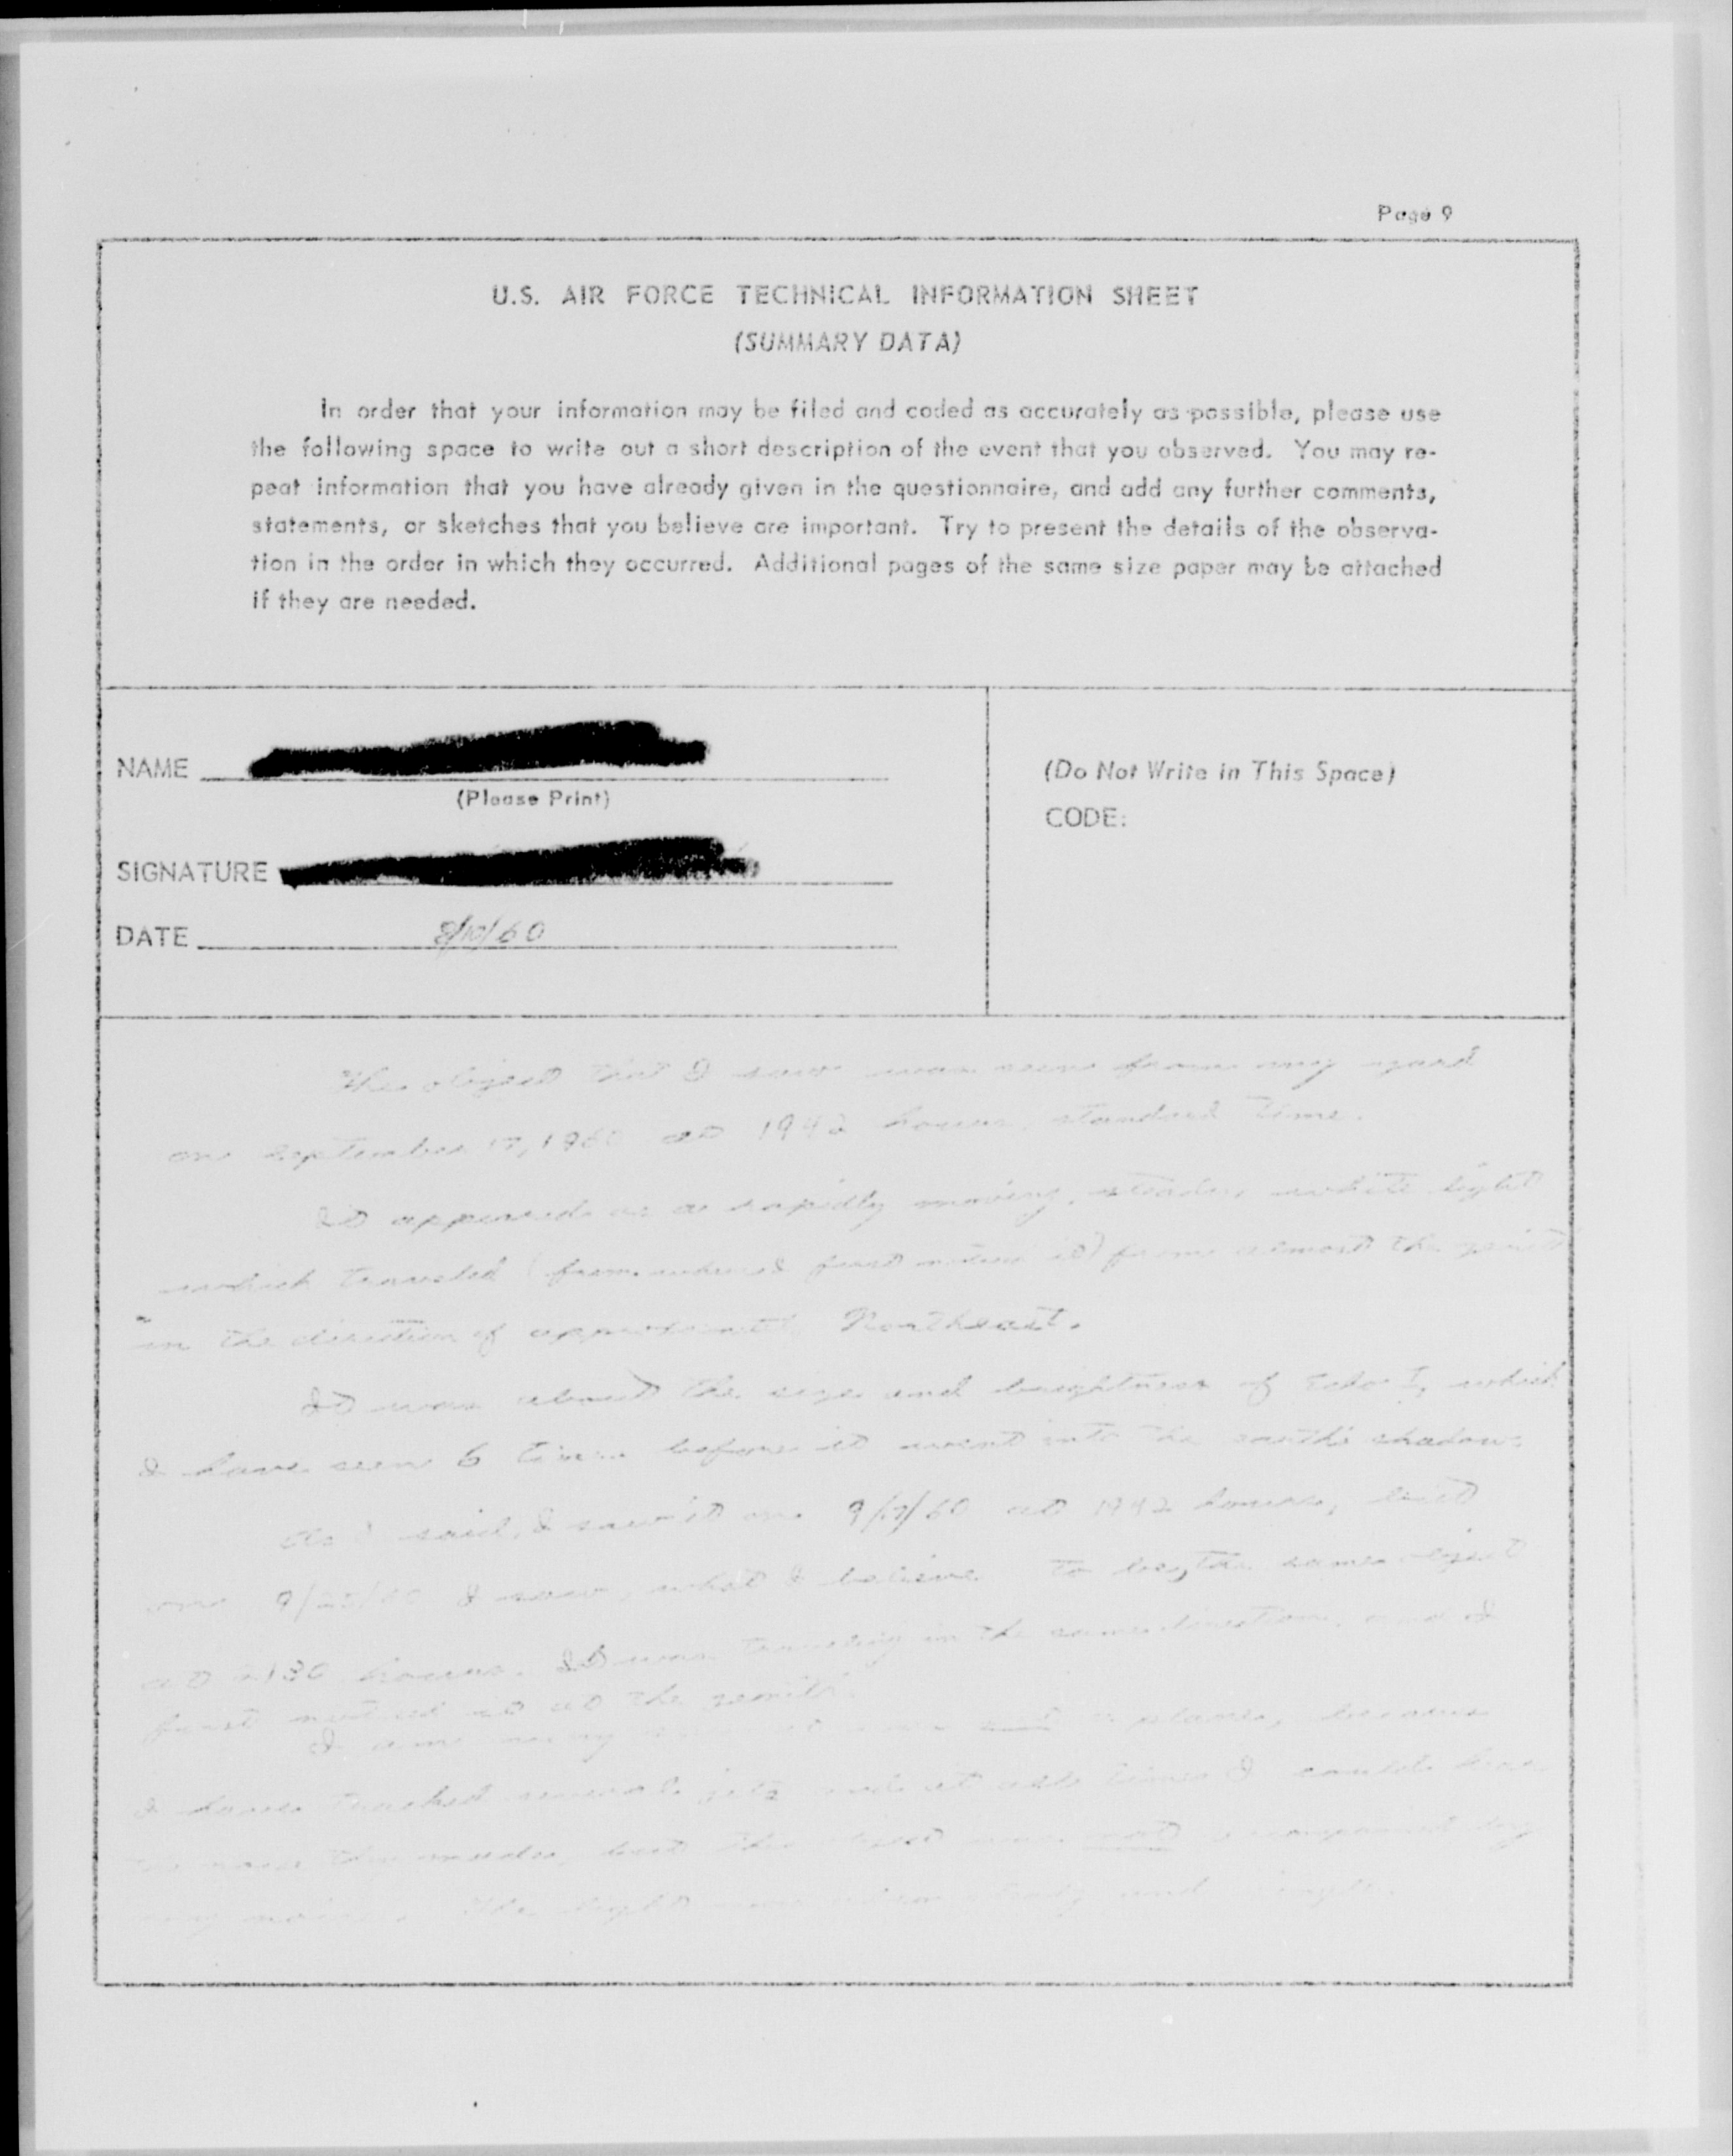 Page 9
U.S. AIR FORCE TECHNICAL INFORMATION SHEET
(SUMMARY DATA)
In order that your information may be filed and coded as accurately as possible, please use
the following space to write out a short description of the event that you observed. You may re-
peat information that you have already given in the questionnaire, and add any further comments,
statements, or sketches that you believe are important. Try to present the details of the observa-
tion in the order in which they occurred. Additional pages of the same size paper may be attached
if they are needed.
NAME
(Please Print)
SIGNATURE
DATE
(Do Not Write in This Space)
CODE:
The object that I saw was seen from my yard
on September 17, 1960 at 1942 hours, standard time.
It appeared as a rapidly moving, steady, white light
which traveled (from where I first noticed it) from almost the
in the direction of Northeast.
It was about the size and brightness of Echo I, which
I have seen 6 times before it went into the earth's shadow.
As I said, I saw it on 9/17/60 at 1942 hours, but
on I saw, what I believe to be, the same object
at hours. It was traveling in the same direction, and I
first noticed it at the zenith.
I am very not a plane, because
I have tracked several jets and at all times I could hear
the noise they made, but this object was not accompanied by
any noise. The light was steady and